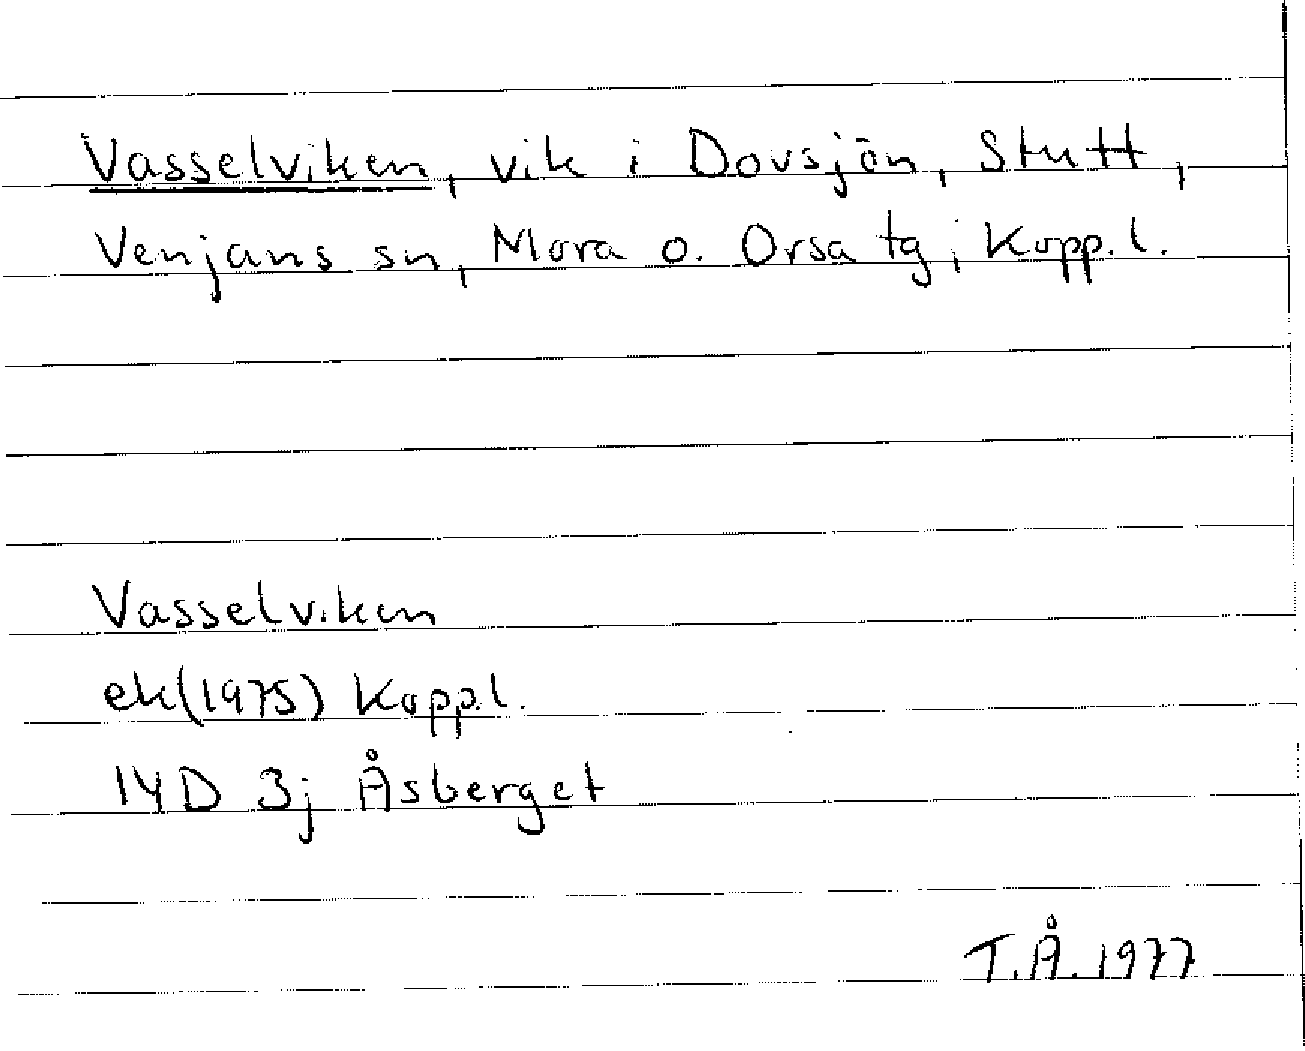 Vasselviken, vik i Dovsjön, Stutt,
Venjans sn, Mora o. Orsa tg, Kopp.l.
Vasselviken
ek(1975) Kopp.l.
14D 3j Åsberget
T.Å. 1977